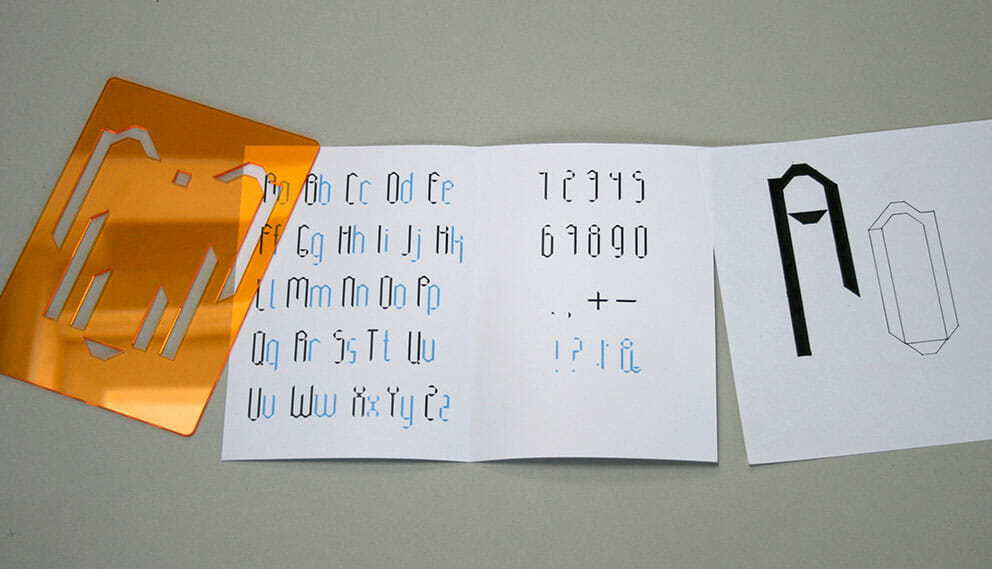 Aa Bb Cc Dd Ee
Ff Gg Hh Ii Jj Kk
Ll Mm Nn Oo Pp
Qq Rr Ss Tt Uu
Vv Ww Xx Yy Zz
1 2 3 4 5
6 7 8 9 0
. , + -
! ? &
A